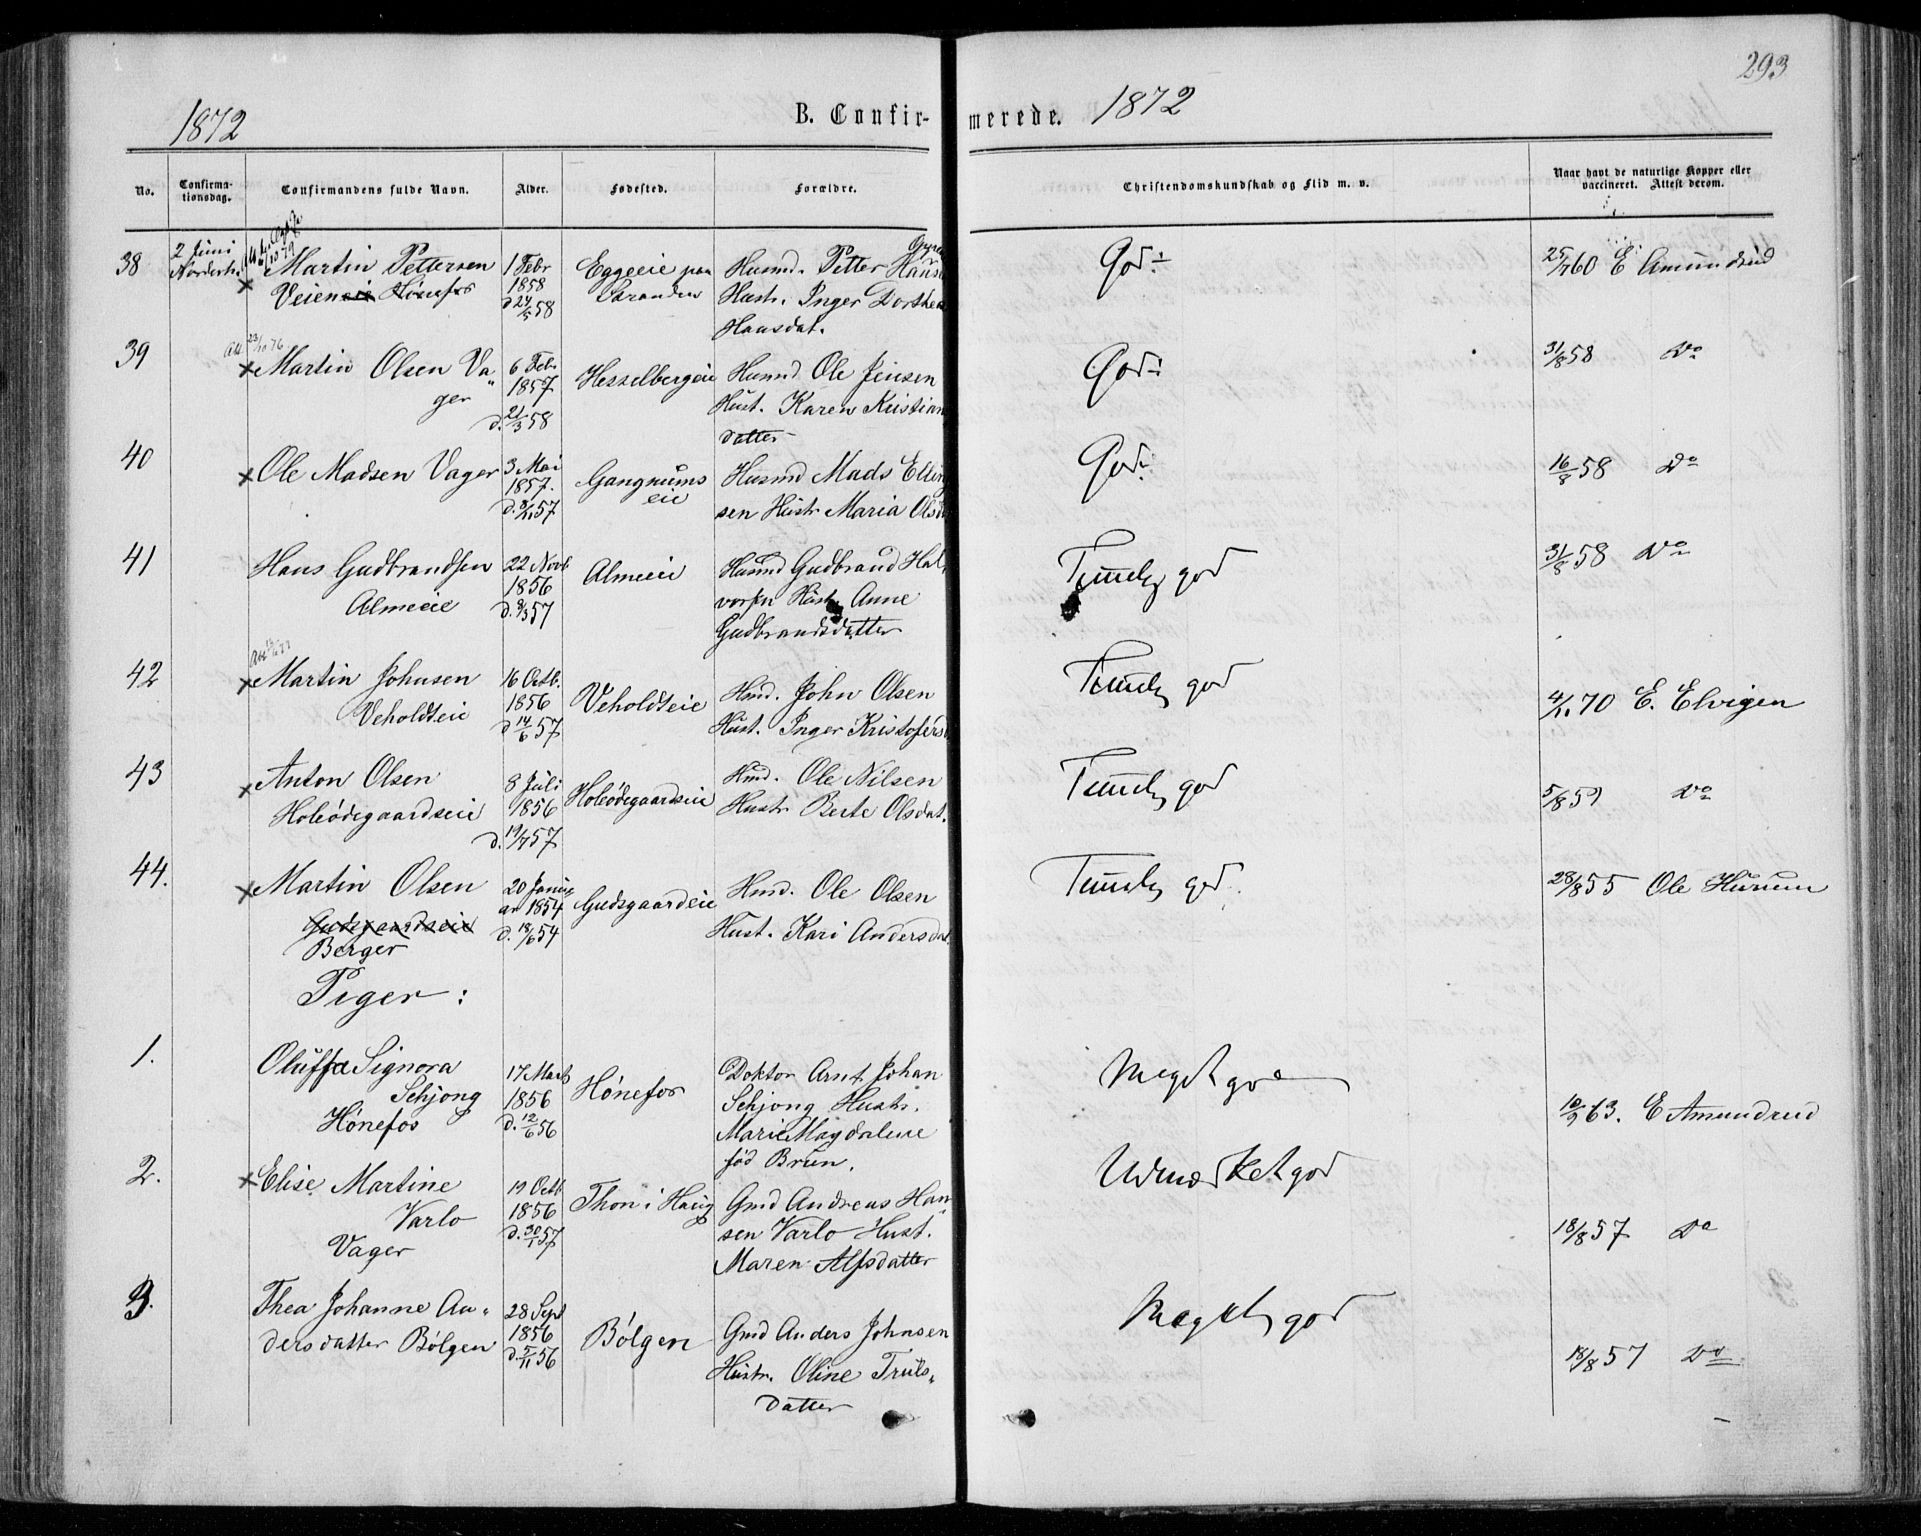 293
1872
B. Confir-
merede.
1872
No.
Confirma-
tionsdag.
Confirmandens fulde Navn.
Alder.
Fødested.
Forældre.
Christendomskundskab og Flid m. v.
Naar havt de naturlige Kopper eller
vaccineret. Attest derom.
38
2 Juni
Norderh.
Martin Pettersen
Veieneie Hønefos
1 Febr
1858
d 24/5 58
Eggeeie paa
Stranden
Husmd. Petter Hansen
Hustr. Inger Dorthea
Hansdat.
God
25/7 60 E Amundrud
39
Att 23/10 76
Martin Olsen Va-
ger
6 Feb.
1857
d. 21/3 58
Hesselbergeie
Husmd Ole Jensen
Hust. Karen Kristian
datter
God
31/8 58 Do
40
Ole Madsen Vager
3 Mai
1857.
d. 8/11 57
Gangnums
eie
Husmd Mads Elling
sen Hustr Maria Olsd
God
16/8 58 Do
41
Hans Gudbrandsen
Almeie
22 Novb
1856
d. 8/3 57
Almeie
Husmd Gudbrand Hal-
vorsen Hustr Anne
Gudbrandsdatter
Temmelig god
31/8 58 Do
42
Martin Johnsen
Veholdteie
16 Octb.
1856
d 14/6 57
Veholdteie
Hmd. John Olsen
Hust. Inger Kristofersd
Temmelig god
4/11 70 E. Elvigen
43
Anton Olsen
Holeødegaardseie
8 Juli
1856
d. 19/7 57
Holeødegaardseie
Hmd. Ole Nilsen
Hustr Berte Olsdat.
Temmelig god
5/8 59 Do
44.
Martin Olsen
Gudsgaardseie
Berger
20 Janu
ar 1854
d. 18/6 54
Gudsgaardeie
Hmd. Ole Olsen
Hust. Kari Andersdat.
Temmelig god.
28/8 55 Ole Hurum
Piger:
1.
Oluffa Signora
Schjong
Hønefos
17 Marts
1856
d. 12/6 56
Hønefos
Doktor Arnt Johan
Schjong Hustr.
Marie Magdalene
fød Brun.
Meget god
10/9 63. E Amundrud
2.
Elise Martine
Varlo
Vager
19 Octb
1856
d. 30/1 57
Thon i Haug
Gmd Andreas Han-
sen Varlo Hust.
Maren Alfsdatter
Udmærket god
18/8 57 Do
3.
Thea Johanne An-
dersdatter Bølgen
28 Sept
1856
d. 5/11 56
Bølgen
Gmd Anders Johnsen
Hustr. Oline Truls-
datter
Meget god
18/8 57 Do